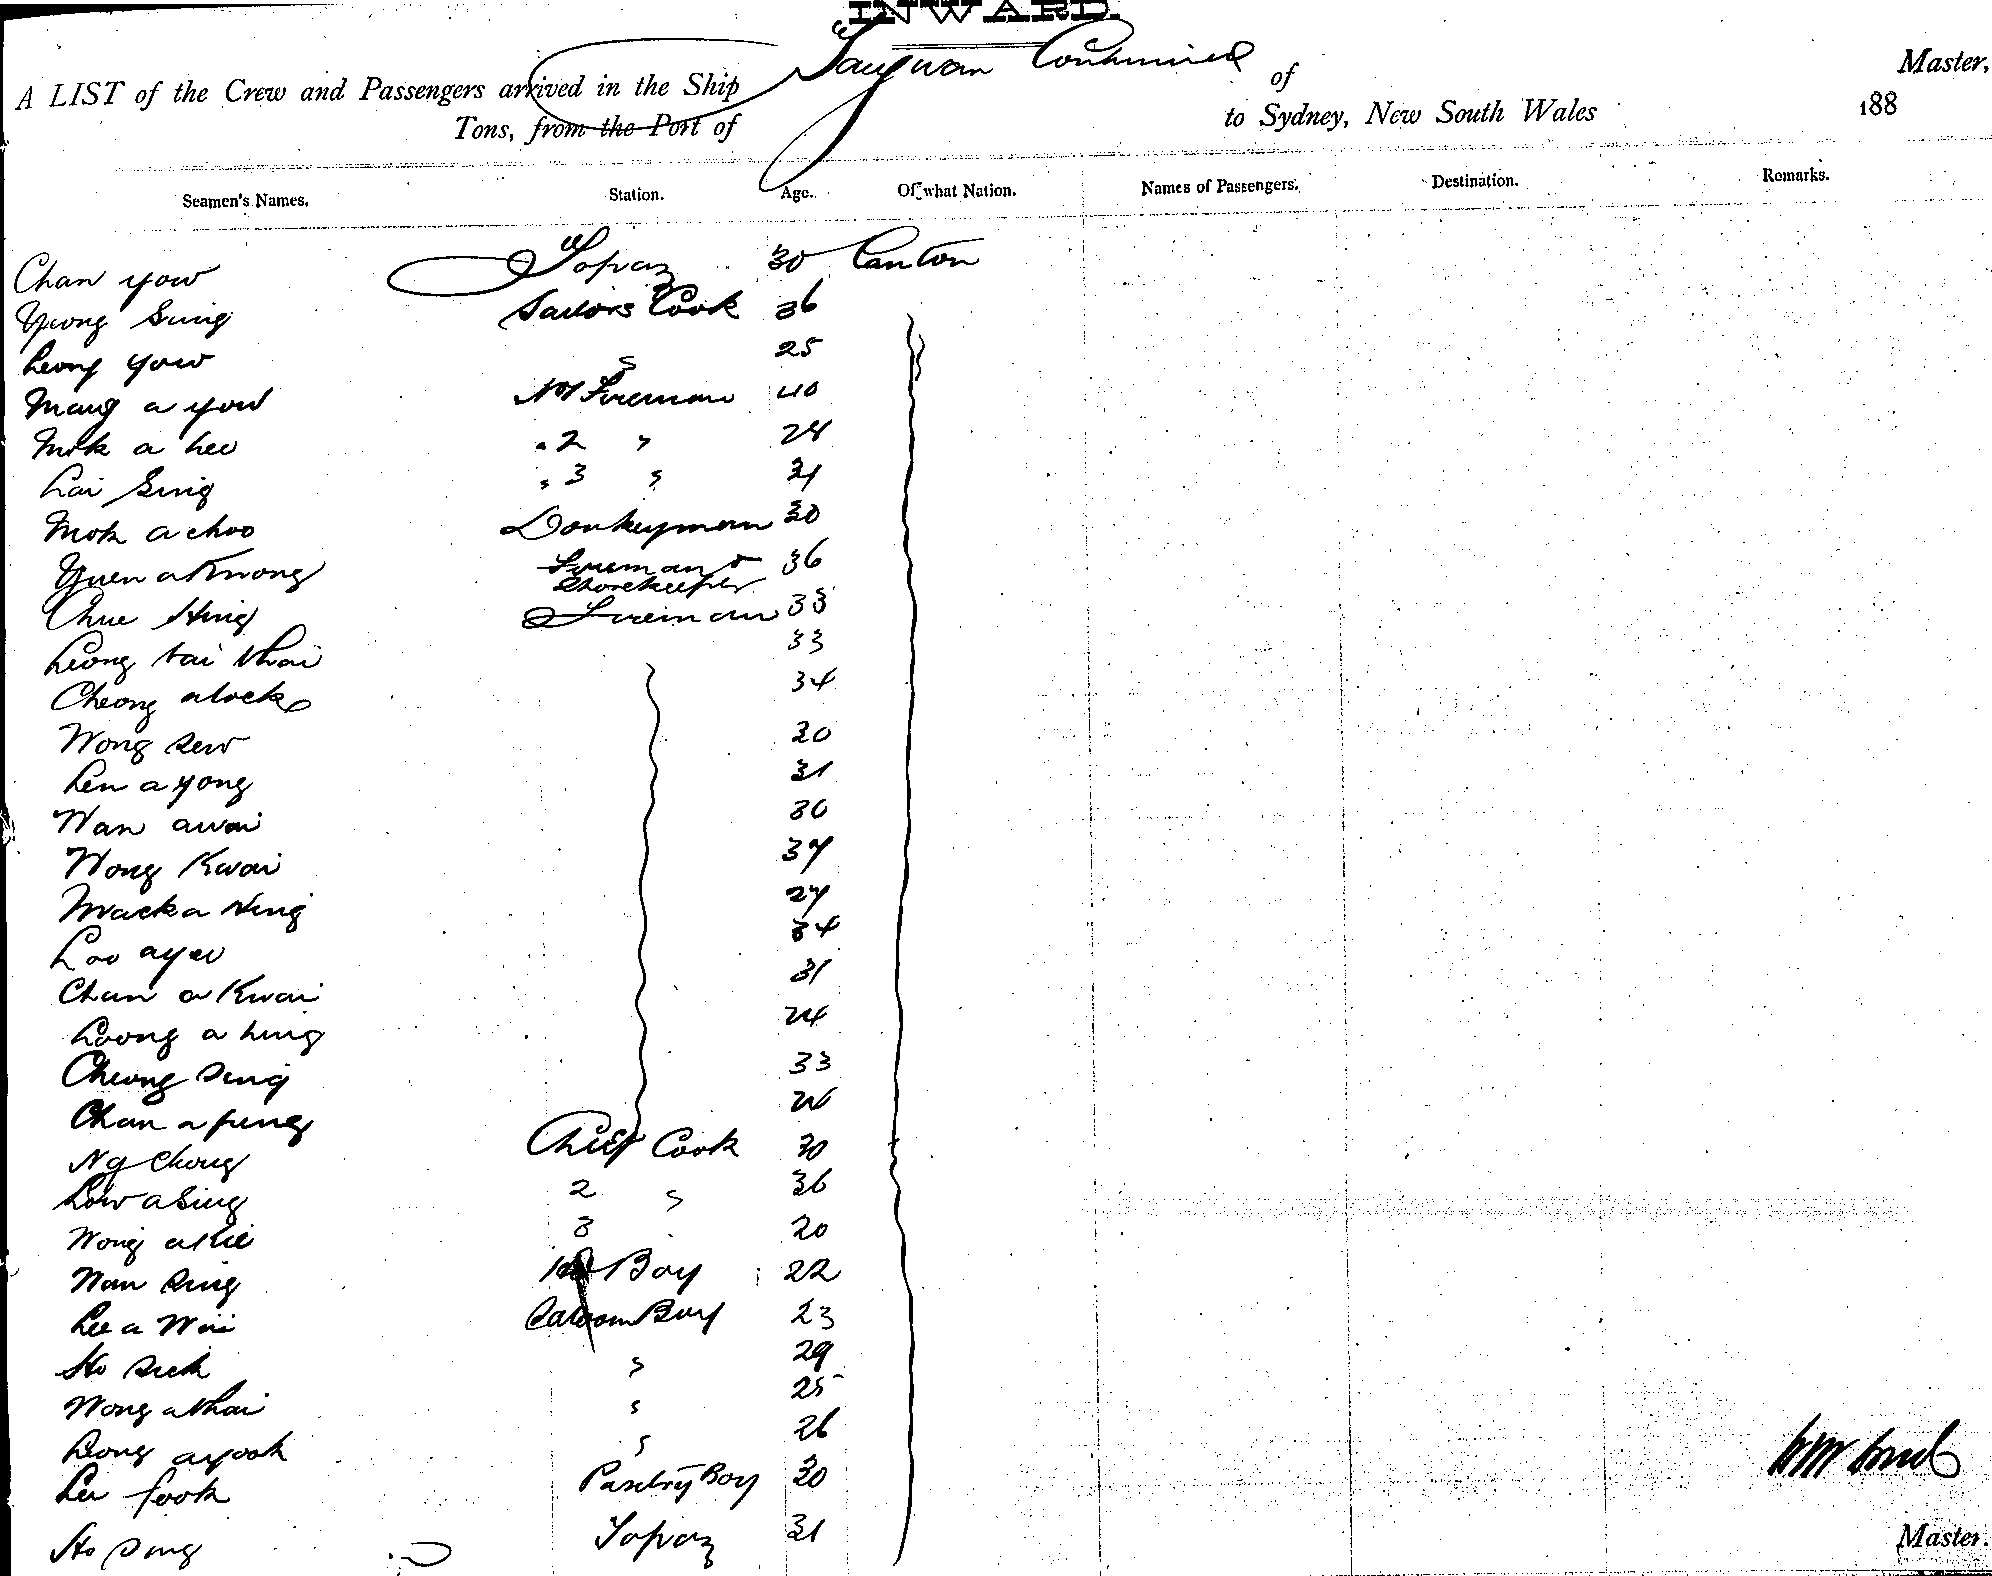 INWARD.
Taiyuan Continued
A LIST of the Crew and Passengers arrived in the Ship of Master,
Tons, from the Port of to Sydney, New South Wales 188
Seamen's Names. Station. Age. Of what Nation. Names of Passengers. Destination. Remarks.
Chan yow Topaz 30 Canton
Yeong Sing Sailors Cook 36
Leong yow " 25
Mang a yow No 1 Fireman 40
Mok a hee " 2 " 24
Lai Sing " 3 " 31
Mok a choo Donkeyman 30
Yuen a Kwong Fireman & Storekeeper 36
Chue Hing Fireman 33
Leong tai Khai 33
Cheong alock 34
Wong Sew 30
Len a yong 31
Wan awai 30
Wong Kwai 37
Mack a Hing 27
Loo ayee 34
Chan a Kwai 31
Loong a hing 24
Cheong Sing 33
Chan a fung
Ng Chong Chief Cook 30
Low a Sing 2 " 36
Wong akie 3 20
Wan Sing 1st Boy 22
Lee a Wai Saloon Boy 23
Ho Suk " 29
Wong akhai " 25
Leong ayook " 26
Lee fook Pantry Boy 30
Ho Sing Topaz 31
Master.